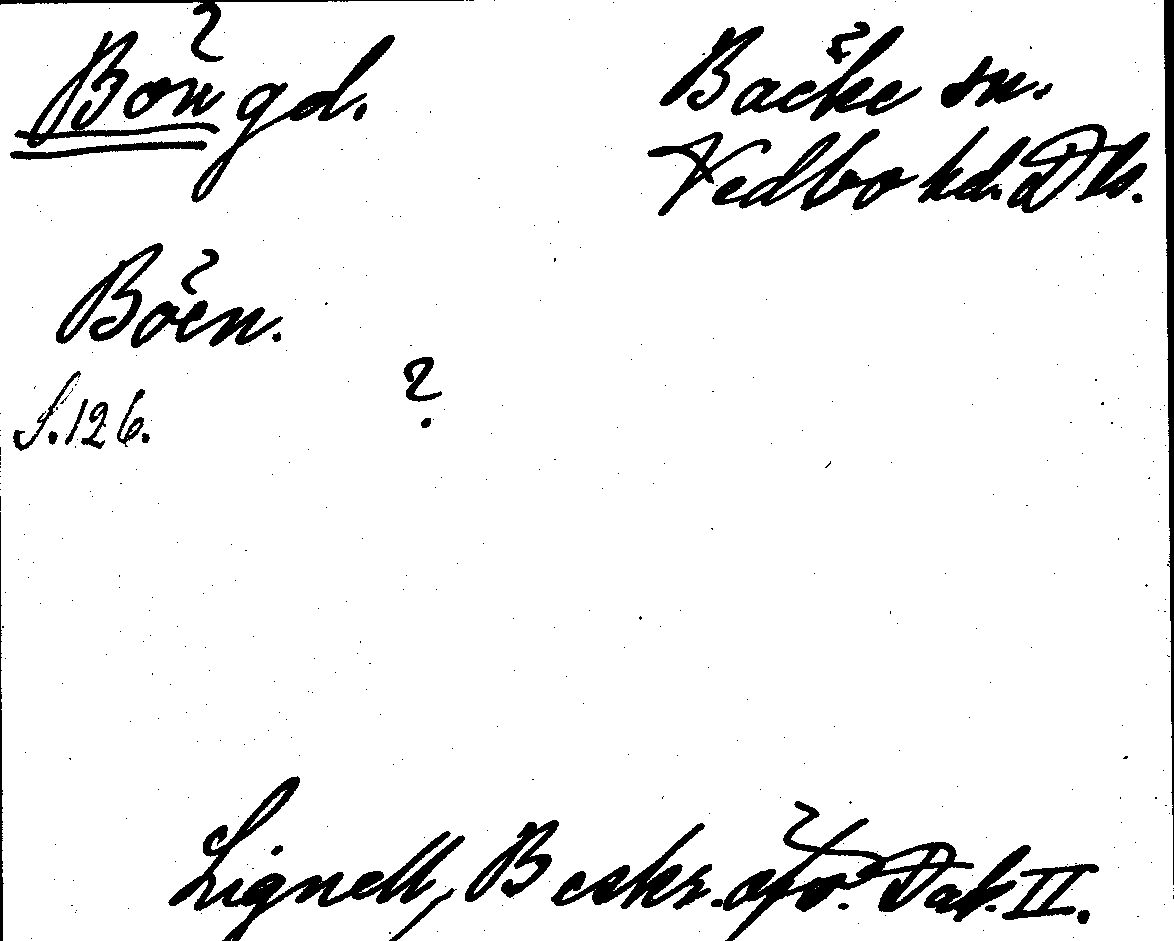 Bön gd.
Bäcke sn.
Vedbo hd. Dls.
Böen.
S. 126.
?
Lignell, Beskr. öfv. Dal. II.